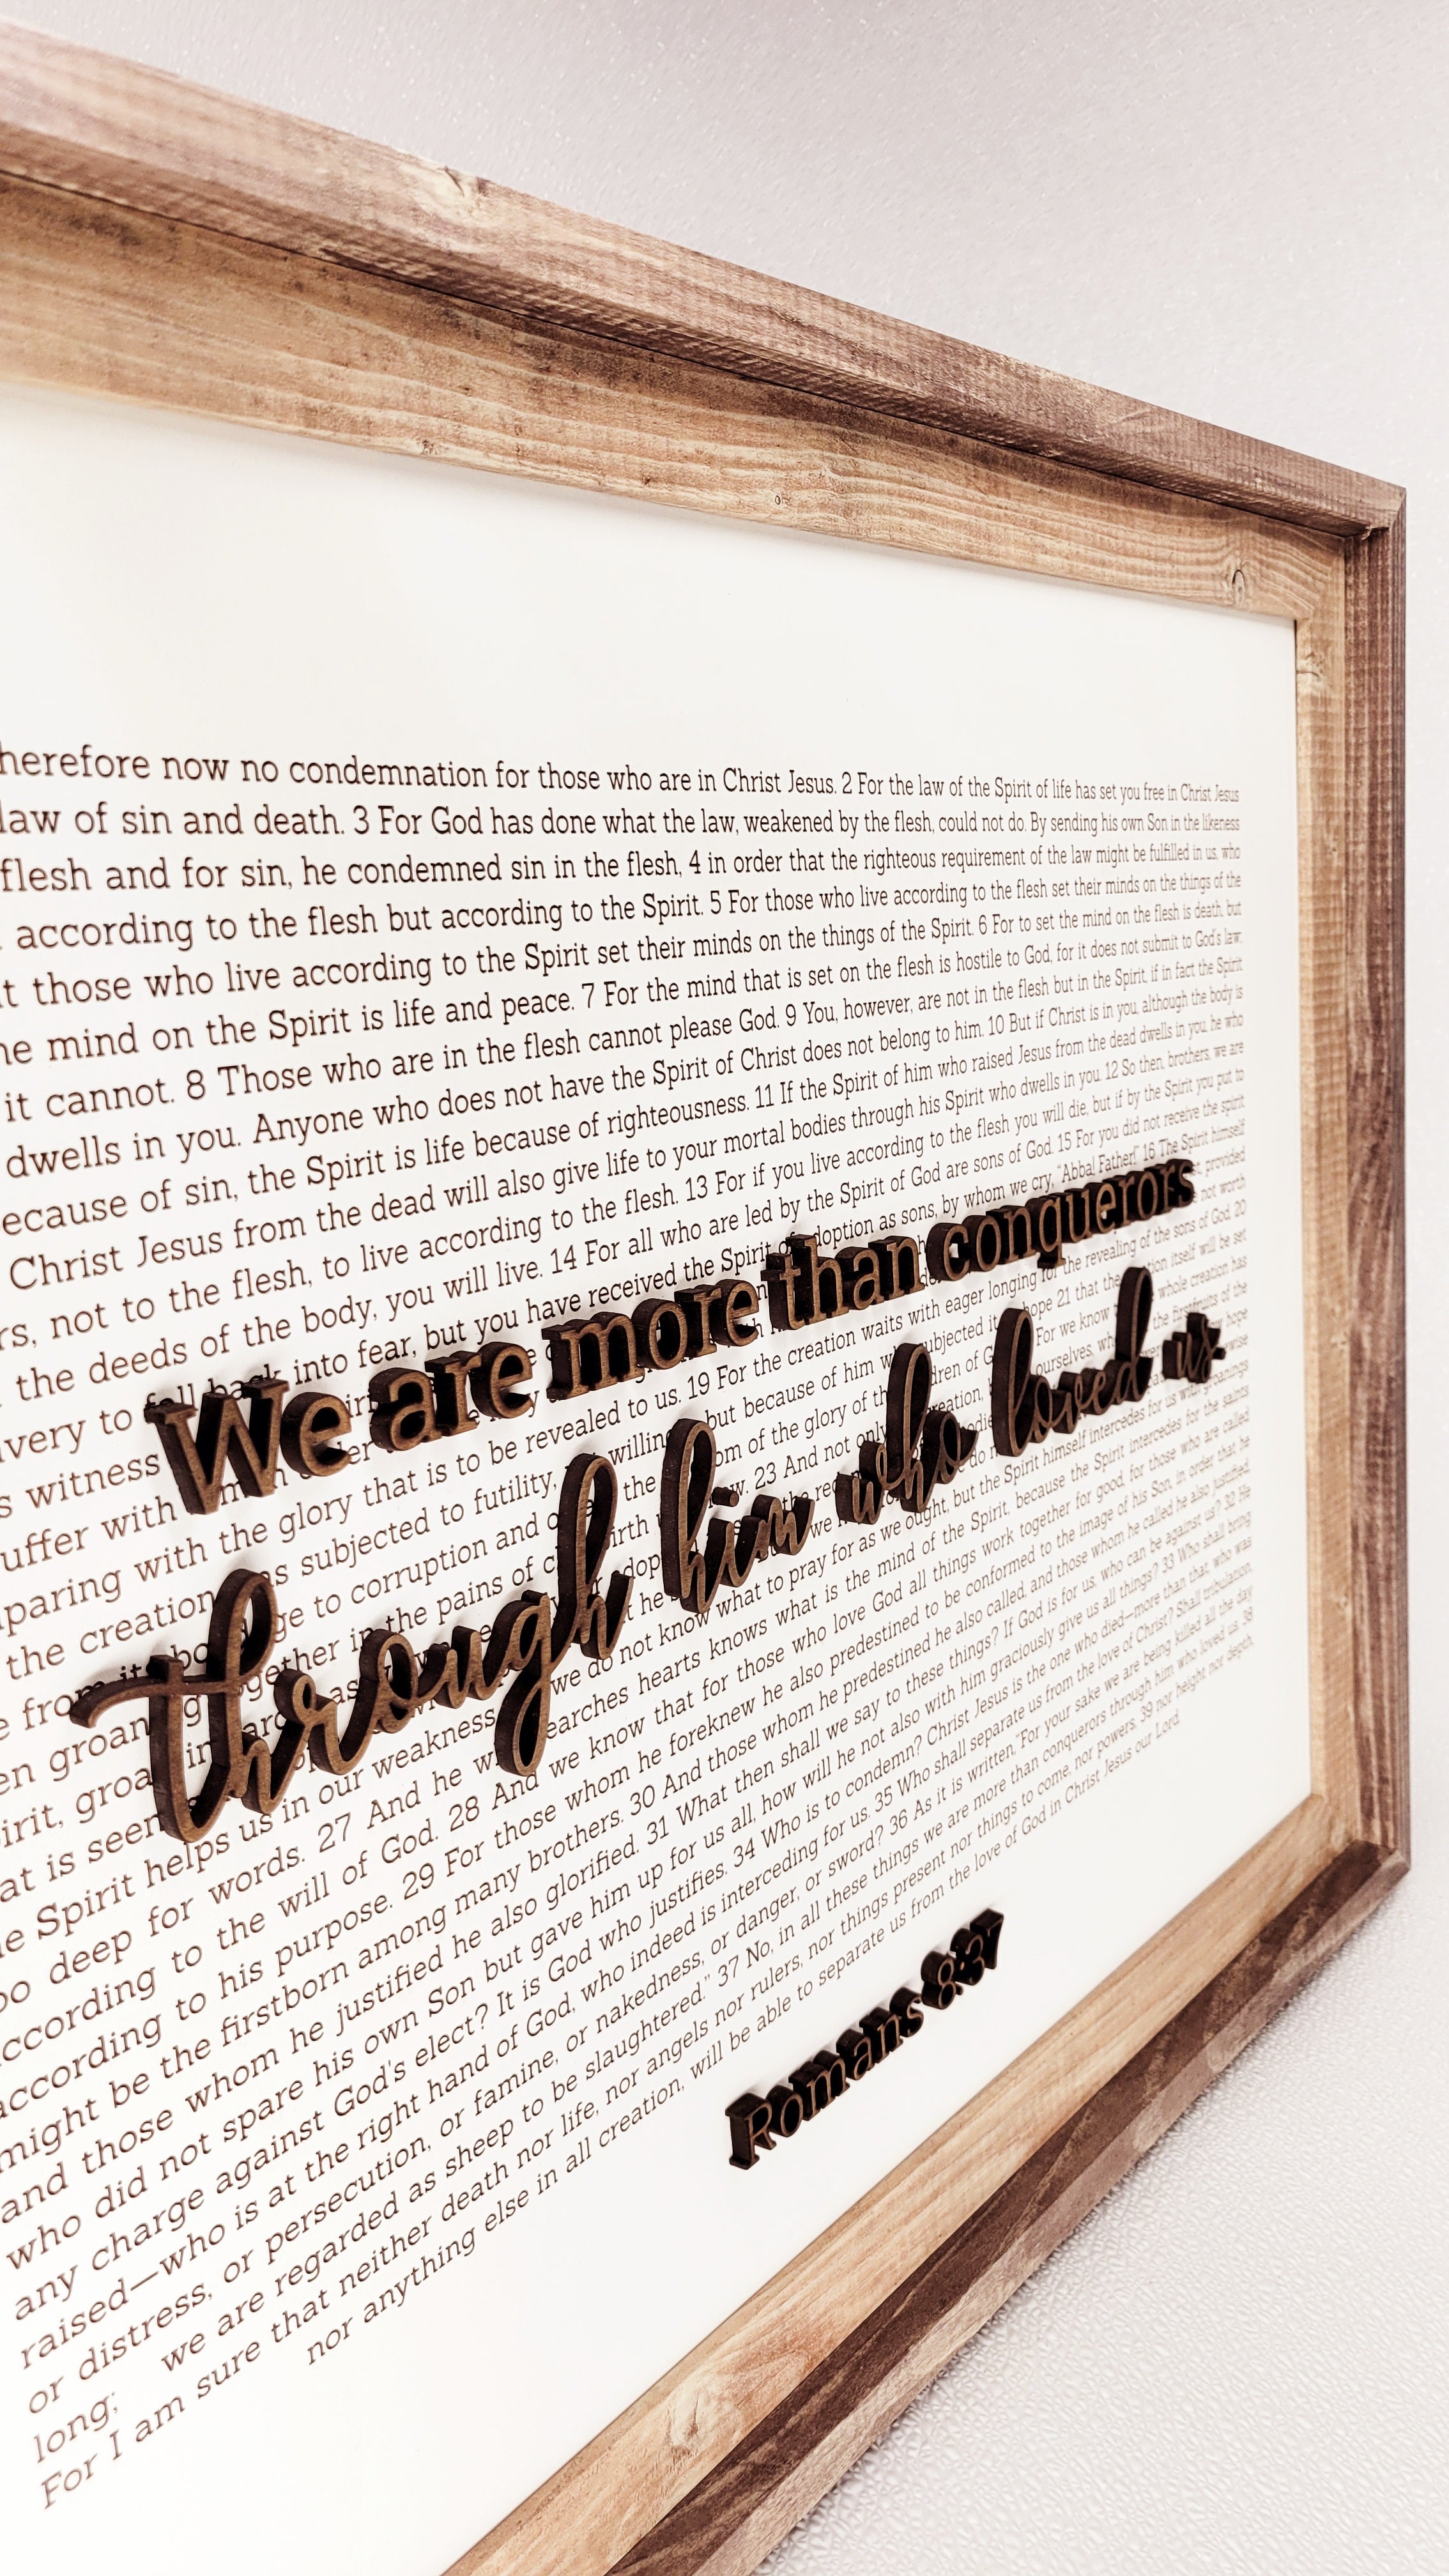 herefore now no condemnation for those who are in Christ Jesus. 2 For the law of the Spirit of life has set you free in Christ Jesus
law of sin and death. 3 For God has done what the law, weakened by the flesh, could not do. By sending his own Son in the likeness
flesh and for sin, he condemned sin in the flesh, 4 in order that the righteous requirement of the law might be fulfilled in us, who
according to the flesh but according to the Spirit. 5 For those who live according to the flesh set their minds on the things of the
t those who live according to the Spirit set their minds on the things of the Spirit. 6 For to set the mind on the flesh is death, but
he mind on the Spirit is life and peace. 7 For the mind that is set on the flesh is hostile to God, for it does not submit to God's law;
it cannot. 8 Those who are in the flesh cannot please God. 9 You, however, are not in the flesh but in the Spirit, if in fact the Spirit
dwells in you. Anyone who does not have the Spirit of Christ does not belong to him. 10 But if Christ is in you, although the body is
ecause of sin, the Spirit is life because of righteousness. 11 If the Spirit of him who raised Jesus from the dead dwells in you, he who
Christ Jesus from the dead will also give life to your mortal bodies through his Spirit who dwells in you. 12 So then, brothers, we are
rs, not to the flesh, to live according to the flesh. 13 For if you live according to the flesh you will die, but if by the Spirit you put to
the deeds of the body, you will live. 14 For all who are led by the Spirit of God are sons of God. 15 For you did not receive the spirit
avery to fall back into fear, but you have received the Spirit of adoption as sons, by whom we cry, "Abba! Father!" 16 The Spirit himself
s witness
We are more than conquerors
uffer with provided
paring with the glory that is to be revealed to us. 19 For the creation waits with eager longing for the revealing of the sons of God. 20
the creation was subjected to futility, willing but because of him who subjected it hope 21 that the creation itself will be set
through him who loved us.
e from its bondage to corruption and the glory of the children of For we know whole creation has
en groaning together in the pains of childbirth now. 23 And not only creation, ourselves, who the firstfruits of the
irit, groan
at is seen
e Spirit helps us in our weakness. we do not know what to pray for as we ought, but the Spirit himself intercedes for us with groanings
oo deep for words. 27 And he who searches hearts knows what is the mind of the Spirit, because the Spirit intercedes for the saints
ccording to the will of God. 28 And we know that for those who love God all things work together for good, for those who are called
according to his purpose. 29 For those whom he foreknew he also predestined to be conformed to the image of his Son, in order that he
might be the firstborn among many brothers. 30 And those whom he predestined he also called, and those whom he called he also justified,
and those whom he justified he also glorified. 31 What then shall we say to these things? If God is for us, who can be against us? 32 He
who did not spare his own Son but gave him up for us all, how will he not also with him graciously give us all things? 33 Who shall bring
any charge against God's elect? It is God who justifies. 34 Who is to condemn? Christ Jesus is the one who died—more than that, who was
raised—who is at the right hand of God, who indeed is interceding for us. 35 Who shall separate us from the love of Christ? Shall tribulation,
or distress, or persecution, or famine, or nakedness, or danger, or sword? 36 As it is written, "For your sake we are being killed all the day
long; we are regarded as sheep to be slaughtered." 37 No, in all these things we are more than conquerors through him who loved us. 38
For I am sure that neither death nor life, nor angels nor rulers, nor things present nor things to come, nor powers, 39 nor height nor depth,
nor anything else in all creation, will be able to separate us from the love of God in Christ Jesus our Lord.
Romans 8:37